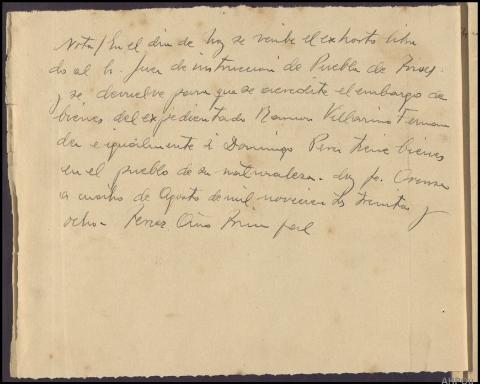 Nota / En el dia de hoy se recibe el exhorto libra
do al Sr. Juez de instruccion de Puebla de Trives
y se devuelve para que se acredite el embargo de
bienes del expedientado Ramon Villarino Fernan
dez e igualmente si Domingo Perez tiene bienes
en el pueblo de su naturaleza. doy fe. Orense
a cuatro de Agosto de mil novecientos treinta y
ocho.-